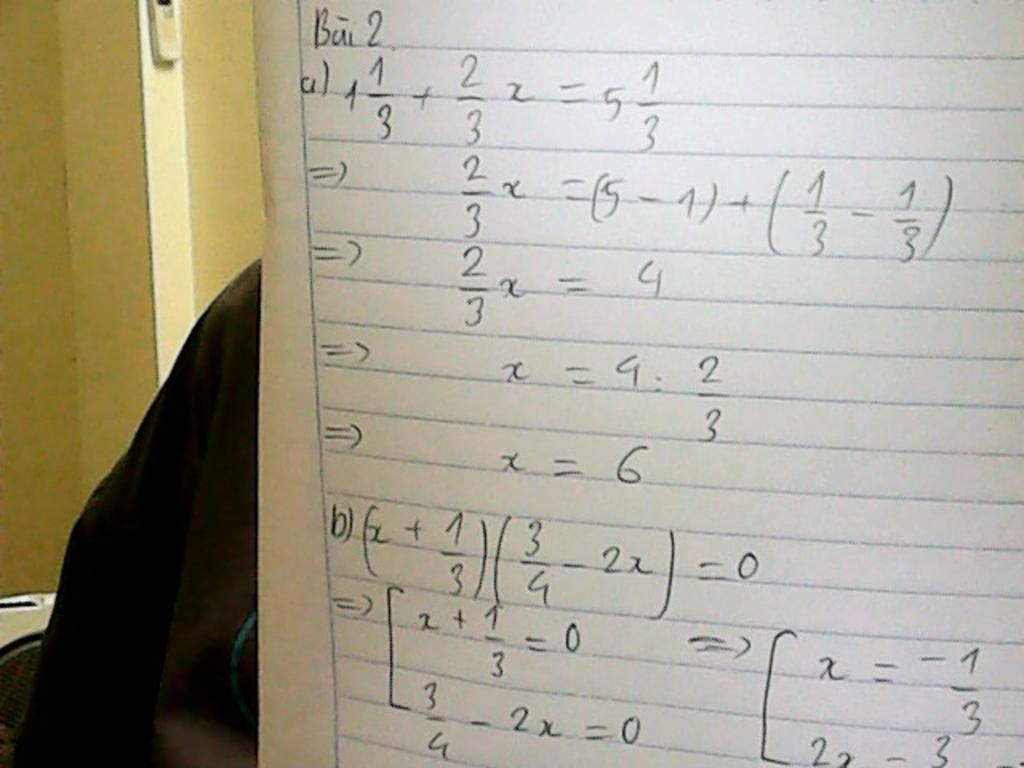 Bài 2.
a) 1 1/3 + 2/3 x = 5 1/3
=> 2/3 x = (5 - 1) + (1/3 - 1/3)
=> 2/3 x = 4
=> x = 4 : 2/3
=> x = 6
b) (x + 1/3)(3/4 - 2x) = 0
=> [ x + 1/3 = 0 => [ x = -1/3
3/4 - 2x = 0 2x = 3